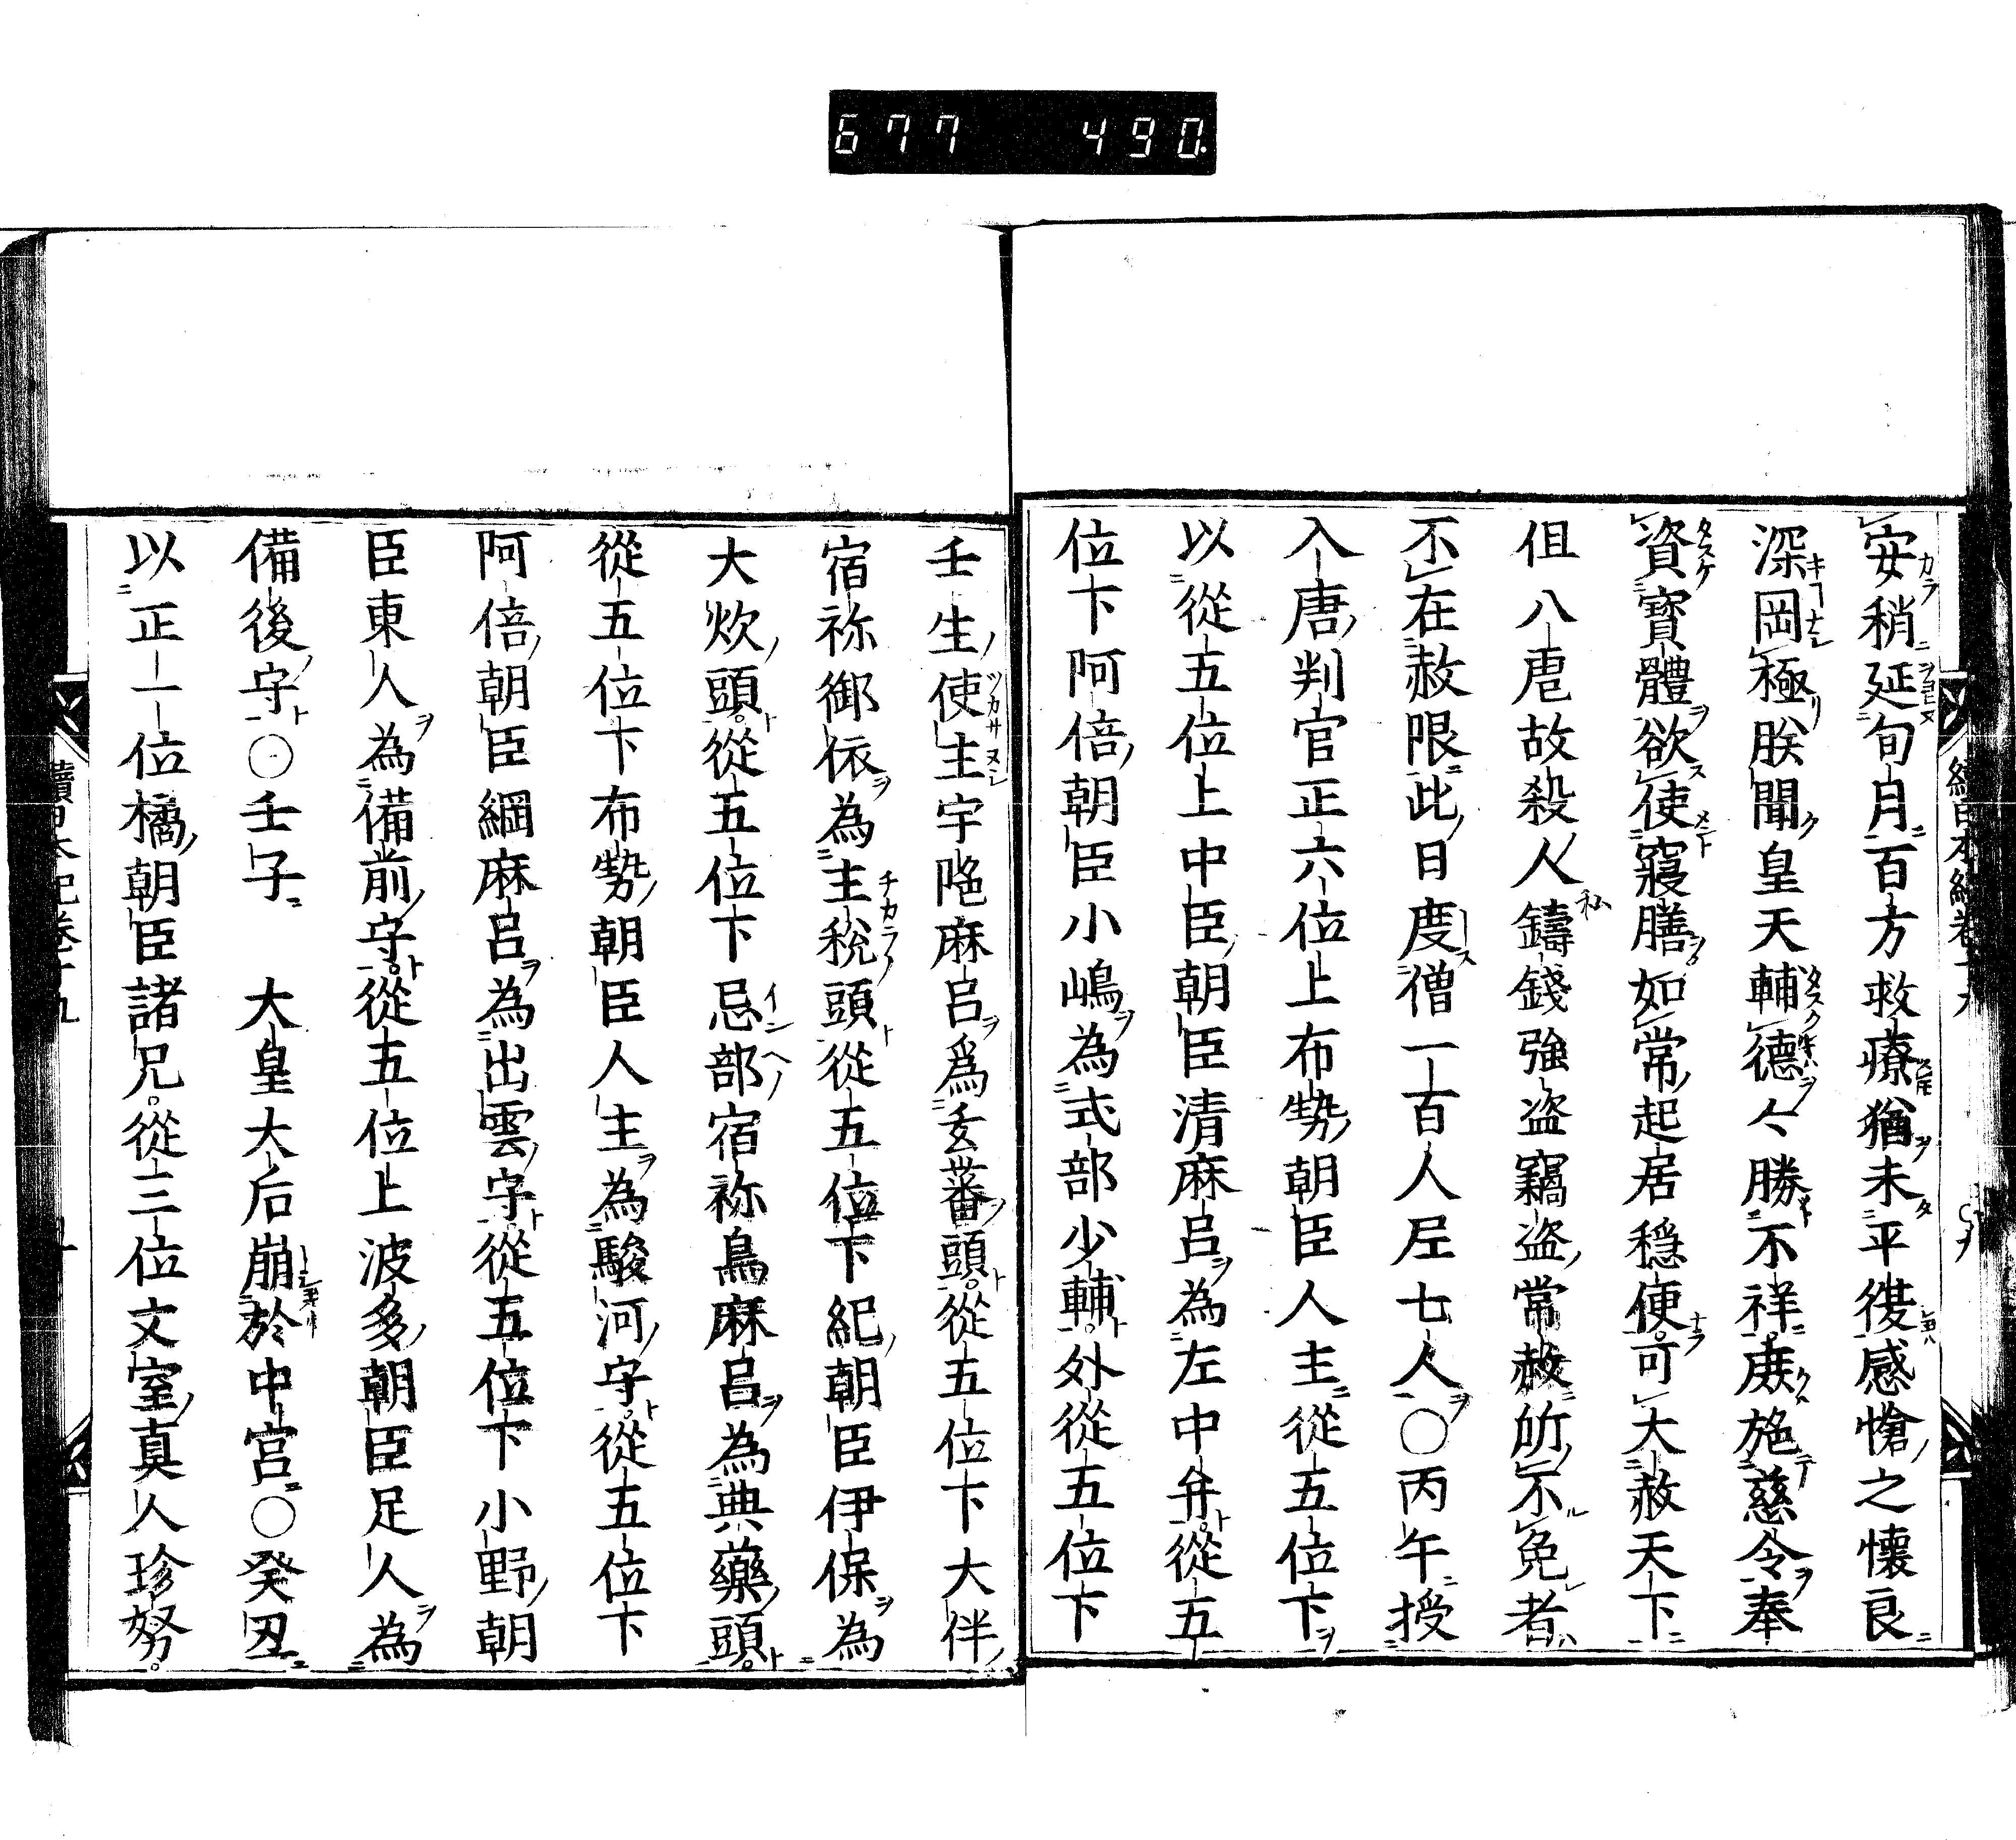 677 490
安稍延旬月百方救療猶未平復感愴之懷良
深岡極朕聞皇天輔德々勝不祥庻施慈令奉
資寶體欲使寢膳如常起居穩便可大赦天下
但八虐故殺人鑄錢強盜竊盜常赦所不免者
不在赦限此日度僧一百人尼七人〇丙午授
入唐判官正六位上布勢朝臣人主從五位下
以從五位上中臣朝臣清麻呂為左中弁從五
位下阿倍朝臣小嶋為式部少輔外從五位下
壬生使主宇陁麻呂為玄蕃頭從五位下大伴
宿祢御依為主稅頭從五位下紀朝臣伊保為
大炊頭從五位下忌部宿祢鳥麻呂為典藥頭
從五位下布勢朝臣人主為駿河守從五位下
阿倍朝臣綱麻呂為出雲守從五位下小野朝
臣東人為備前守從五位上波多朝臣足人為
備後守〇壬子　大皇大后崩於中宮〇癸丑
以正一位橘朝臣諸兄從三位文室真人珍努